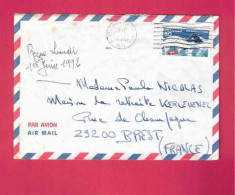 Reçue Lundi
1er Juin 1992
Madame Paule NICOLAS
Maison de retraite KERLEVENEZ
Rue de Champagne
29200 BREST
(FRANCE)
PAR AVION
AIR MAIL